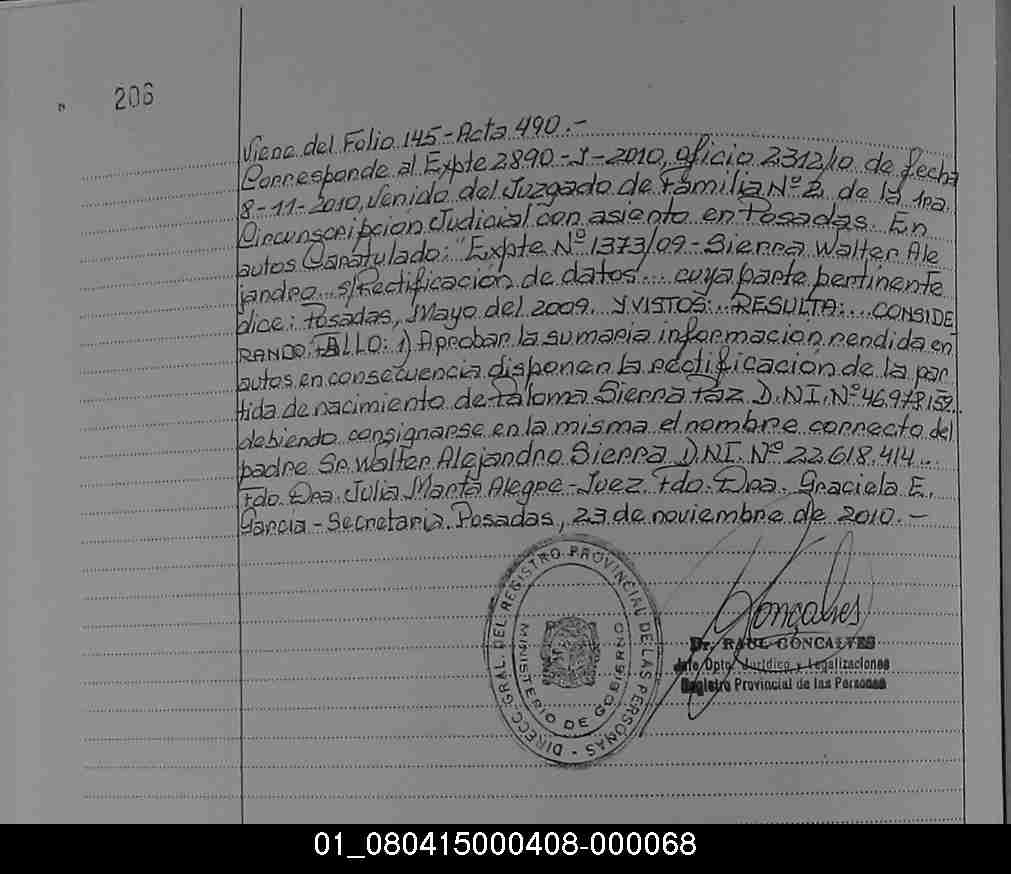 206
Viene del Folio 145 - Acta 490.-
Corresponde al Expte 2890-J-2010, oficio 2312/10 de fecha
8-11-2010, venido del Juzgado de Familia Nº 2, de la 1ra.
Circunscripcion Judicial con asiento en Posadas. En
autos Caratulado: "Expte Nº 1373/09 - Sierra Walter Ale
jandro s/Rectificación de datos... cuya parte pertinente
dice: Posadas, Mayo del 2009... Y VISTOS:.. RESULTA:... CONSIDE
RANDO: FALLO: 1) Aprobar la sumaria informacion rendida en
autos en consecuencia disponer la rectificación de la par
tida de nacimiento de Paloma Sierra Paz D.N.I. Nº 46.978.159...
debiendo consignarse en la misma el nombre correcto del
padre Sr. Walter Alejandro Sierra D.N.I. Nº 22.618.414...
Fdo. Dra. Julia Marta Alegre - Juez. Fdo. Dra. Graciela E.
Garcia - Secretaria. Posadas, 23 de noviembre de 2010.-
DIRECC. GRAL. DEL REGISTRO PROVINCIAL DE LAS PERSONAS -
MINISTERIO DE GOBIERNO
Gonçalves
Dr. RAUL GONCALVES
Jefe Dpto. Jurídico y Legalizaciones
Registro Provincial de las Personas
01_080415000408-000068